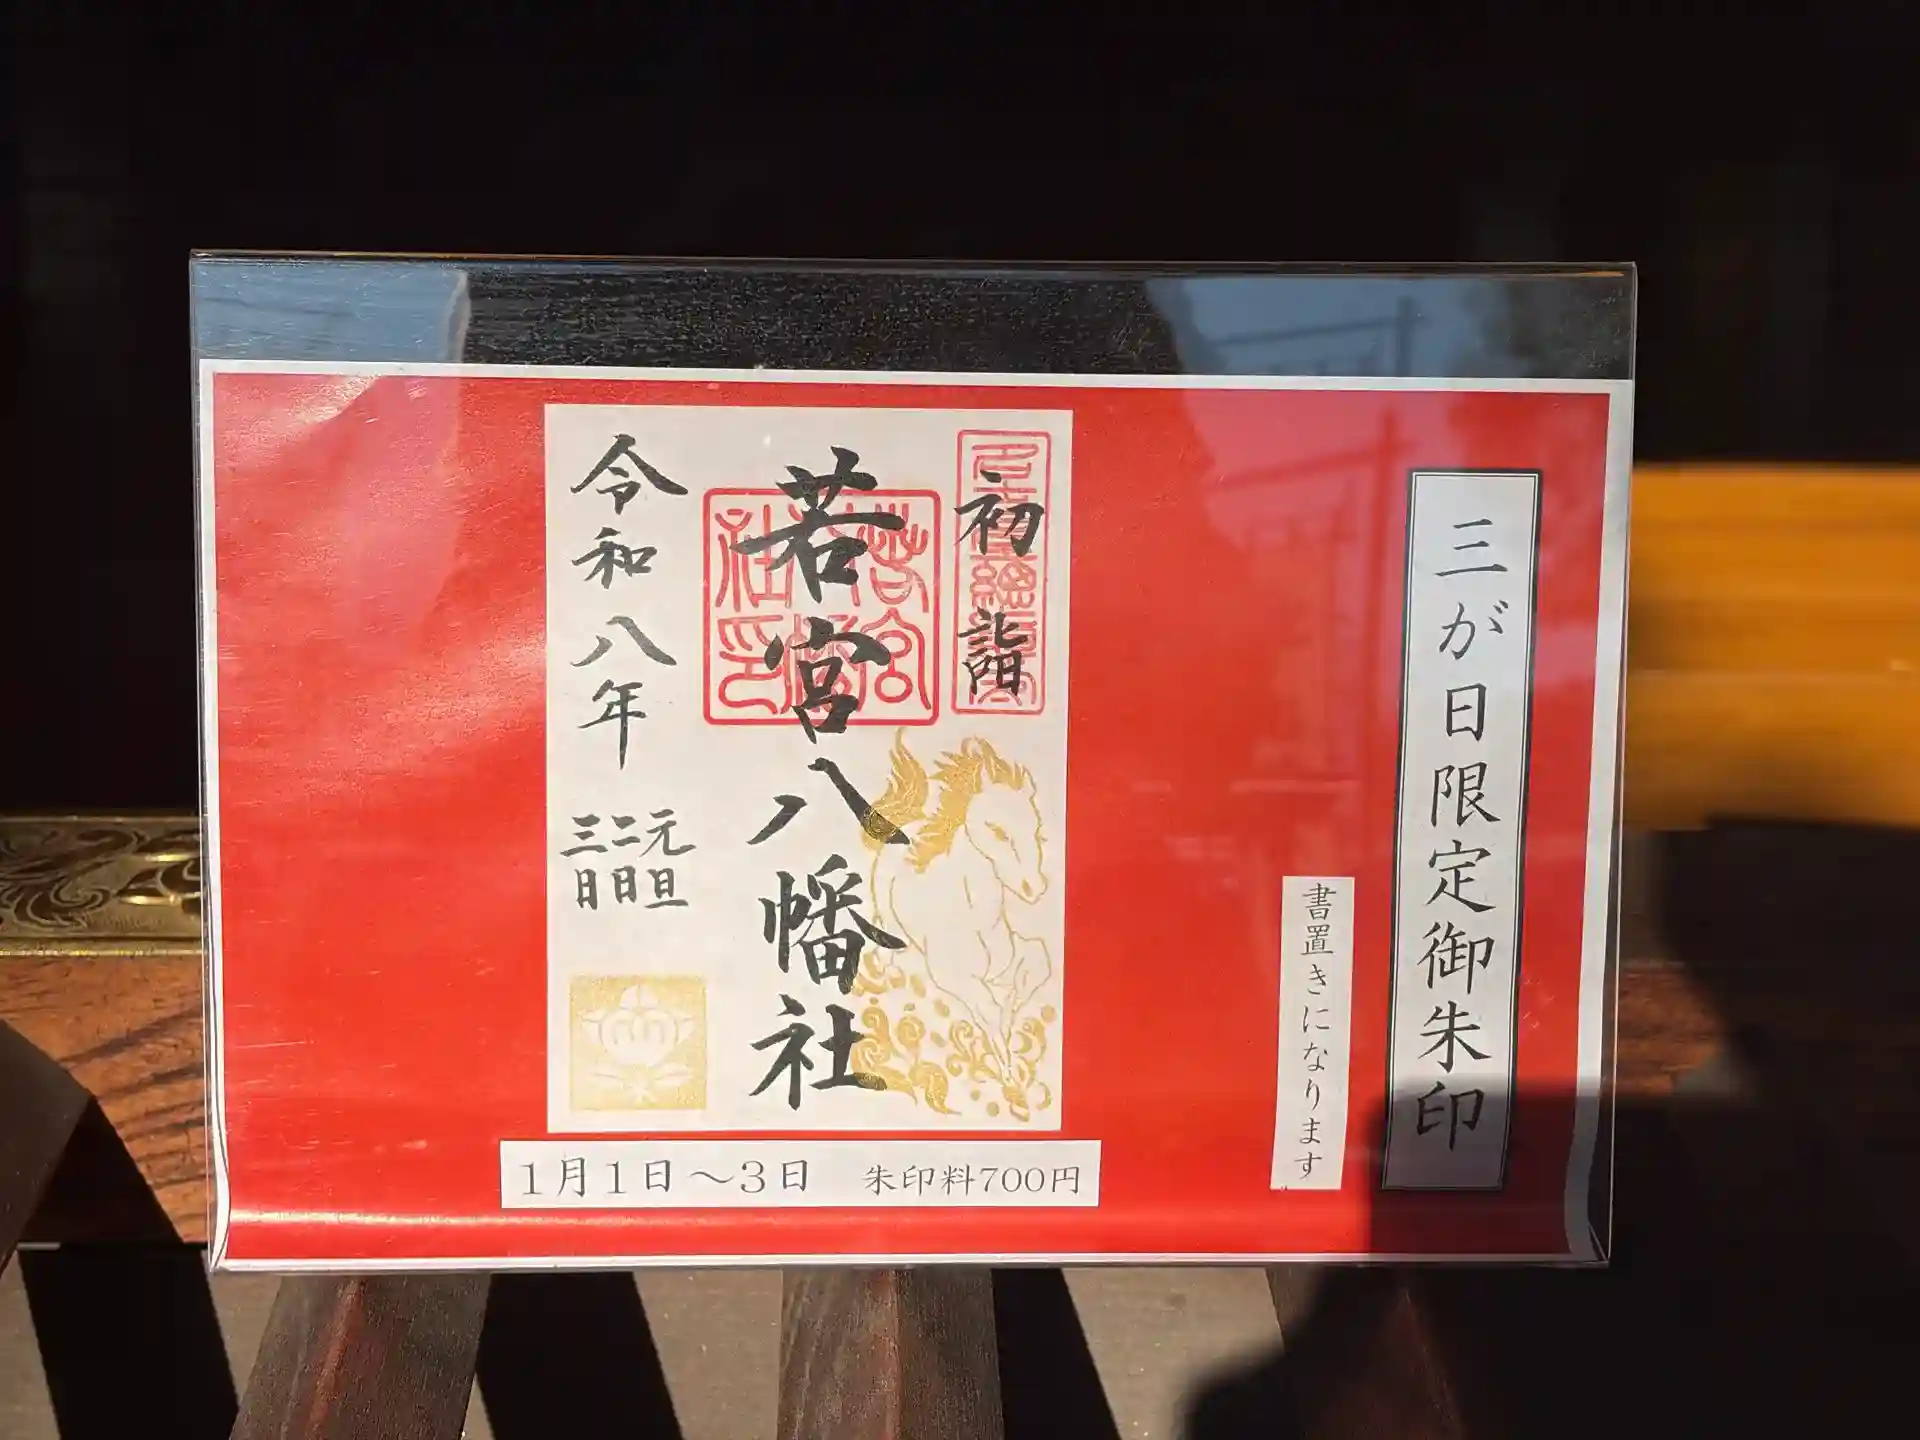 三が日限定御朱印
書置きになります
初詣
若宮八幡社
若宮八幡社印
令和八年
元旦
二日
三日
1月1日～3日　朱印料700円